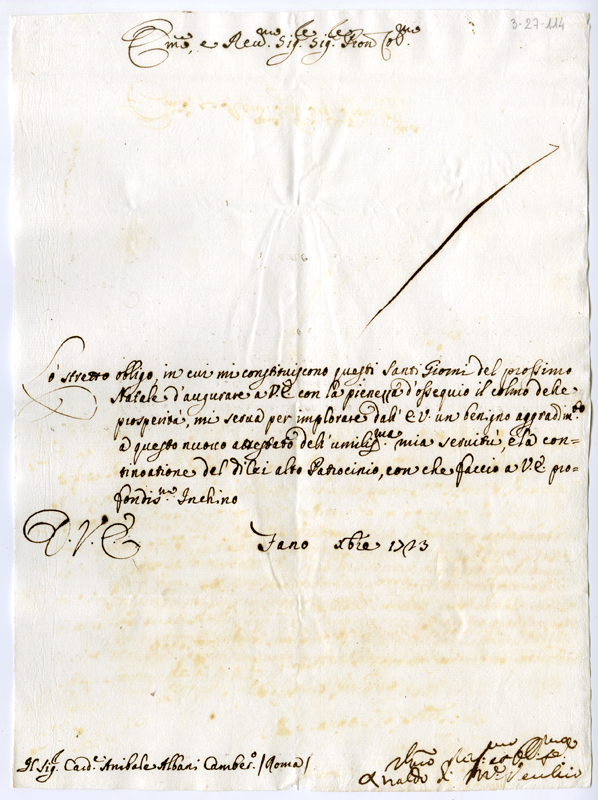 3-27-114
Em.mo, e Reu.mo Sig.re Sig.re Pron Col.mo
Lo' stretto obligo, in cui mi constituiscono questi Santi Giorni del prossimo
Natale d'augurare a V.E. con la pienezza d'ossequio il colmo delle
prosperità, mi serua per implorare dall' E.V. un benigno aggradim.to
a questo nuouo attestato dell' umiliss.ma mia seruitù, e la con=
tinoatione del di lei alto Patrocinio, con che faccio a V.E. pro=
fondis.mo Inchino
D. V. E.
Fano xbre 1723
Il Sig.r Card.e Anibale Albani Camber.o /Roma/